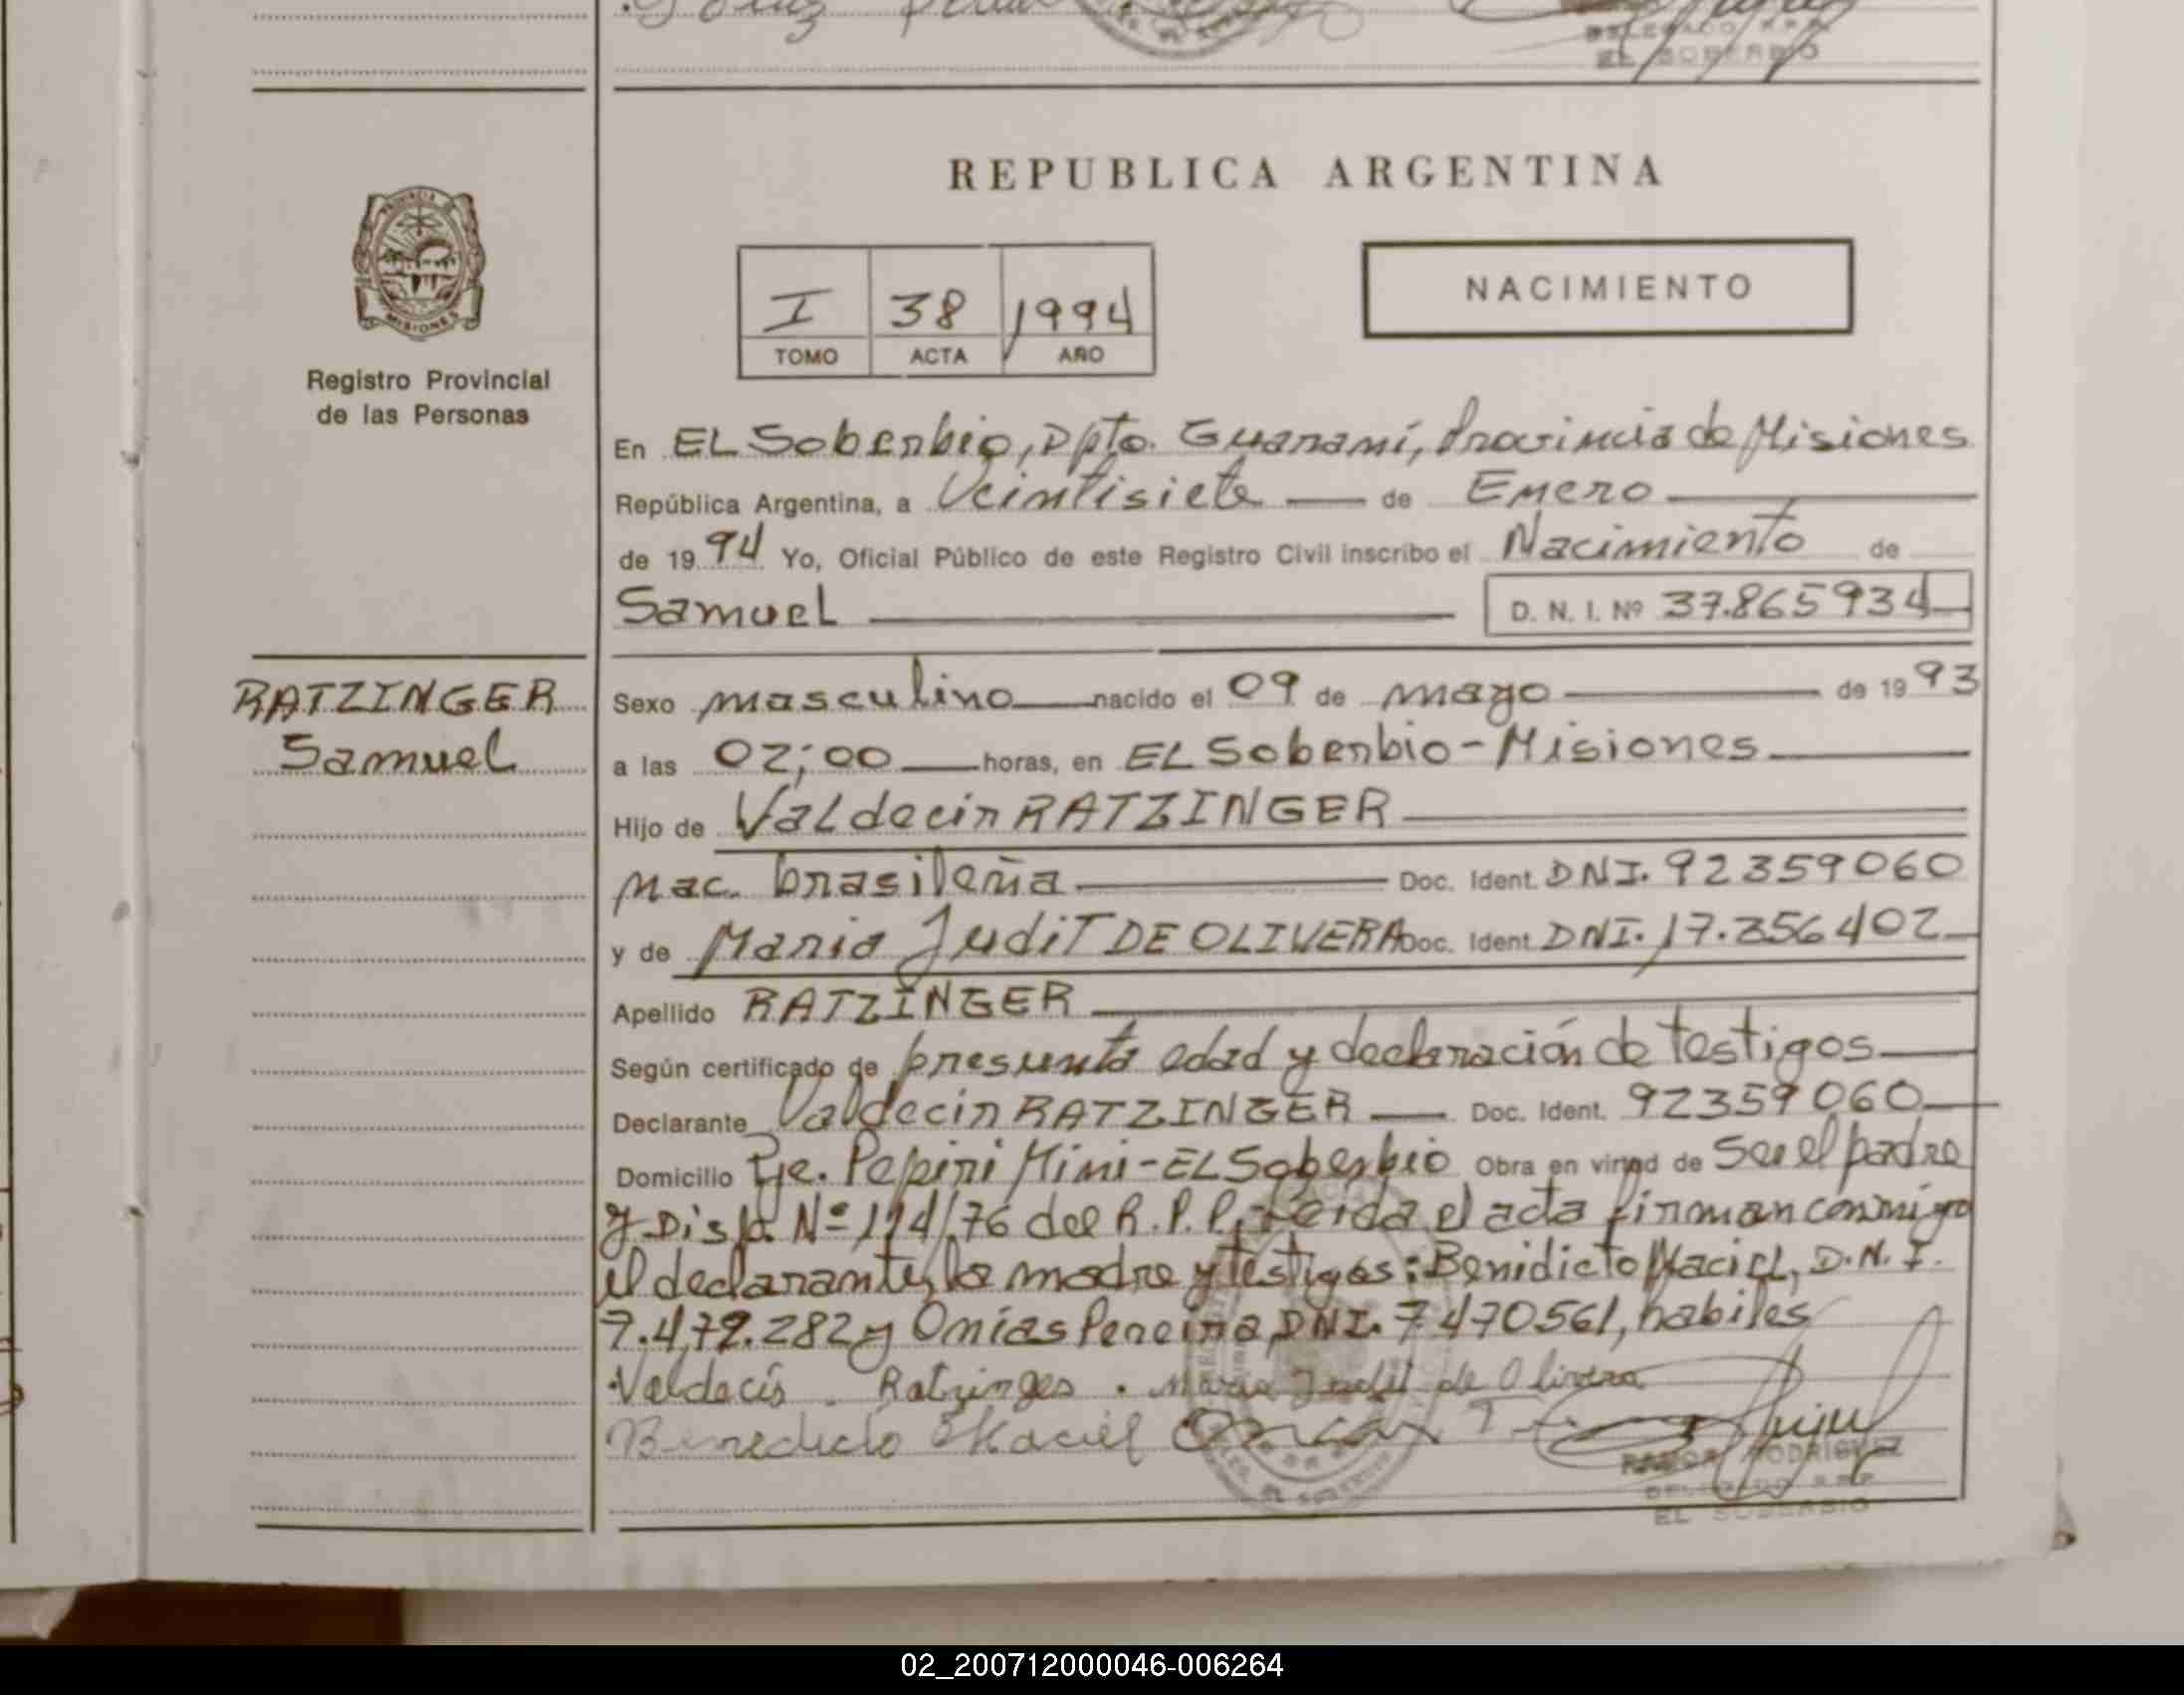 DELEGADO R.P.P.
EL SOBERBIO
REPUBLICA ARGENTINA
PROVINCIA DE
MISIONES
Registro Provincial
de las Personas
I 38 1994
TOMO ACTA AÑO
NACIMIENTO
En EL Soberbio, Dpto. Guaraní, Provincia de Misiones
República Argentina, a Veintisiete de Enero
de 1994 Yo, Oficial Público de este Registro Civil inscribo el Nacimiento de
Samuel D. N. I. Nº 37.865934
RATZINGER
Samuel
Sexo masculino nacido el 09 de mayo de 1993
a las 02;00 horas, en EL Soberbio-Misiones
Hijo de Valdecir RATZINGER
Nac. brasileña Doc. Ident. DNI. 92359060
y de Maria Judit DE OLIVERA Doc. Ident. DNI. 17.356402
Apellido RATZINGER
Según certificado de presunta edad y declaración de testigos
Declarante Valdecir RATZINGER Doc. Ident. 92359060
Domicilio Pje. Pepiri Mini-EL Soberbio Obra en virtud de Ser el padre
y Disp. Nº 114/76 del R.P.P. Leida el acta firman conmigo
el declarante, la madre y testigos: Benidicto Maciel, D.N.I.
7.472.282 y Onías Pereira DNI. 7470561, habiles
Valdecís Ratzinges. Maria Judit de Olivera
Benedicto Maciel
RAMON RODRIGUEZ
DELEGADO R.P.P.
EL SOBERBIO
02_200712000046-006264